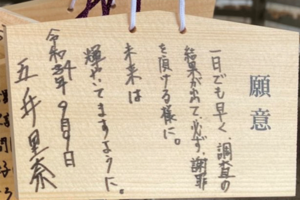 願意
一日でも早く、調査の
結果が出て、必ず、謝罪
を頂ける様に。
未来は
輝やいてますように。
令和4年9月9日
五井里奈